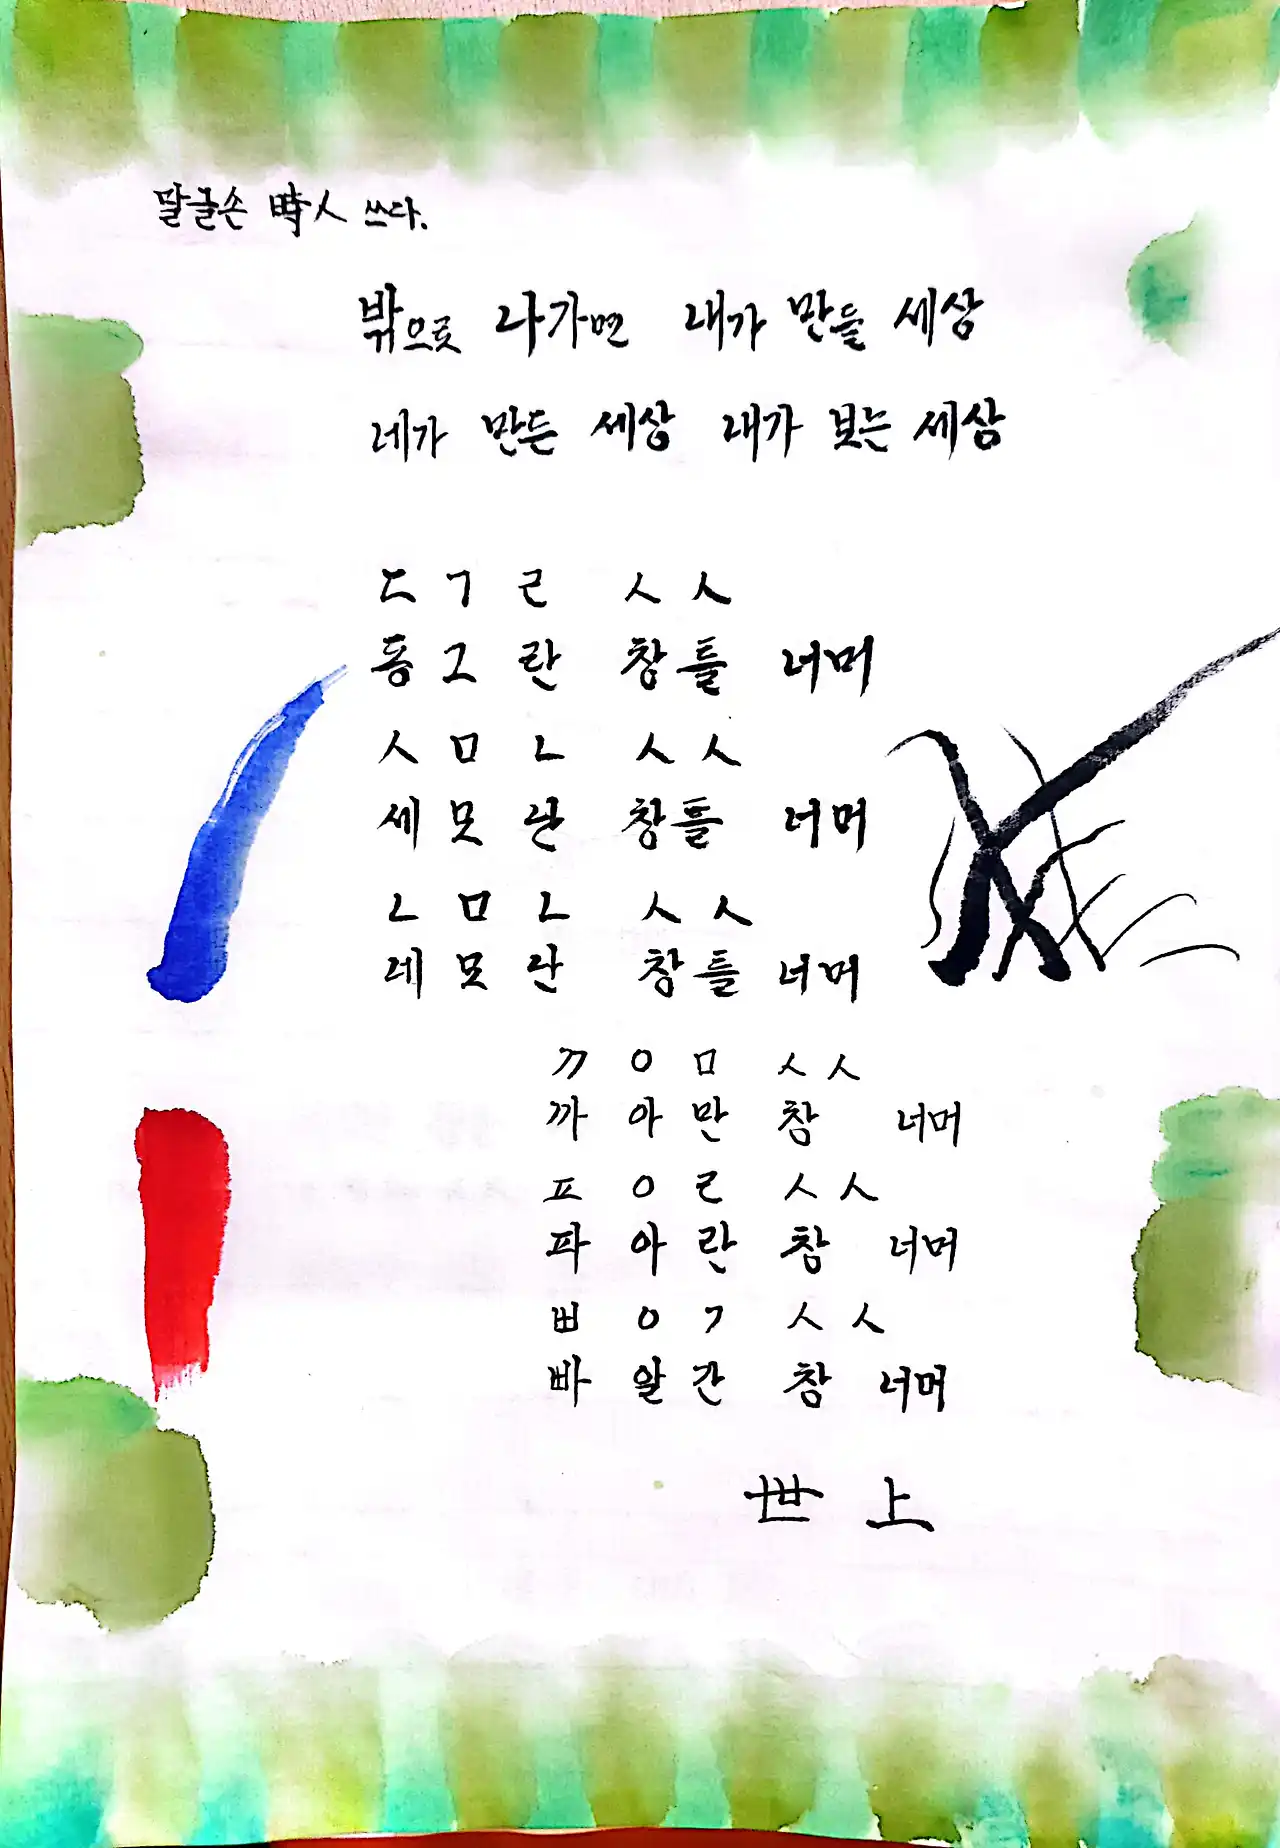 말글손 時人 쓰다.
밖으로 나가면 내가 만들 세상
네가 만든 세상 내가 보는 세상
ㄷ ㄱ ㄹ ㅅ ㅅ
동 그 란 창틀 너머
ㅅ ㅁ ㄴ ㅅ ㅅ
세 모 난 창틀 너머
ㄴ ㅁ ㄴ ㅅ ㅅ
네 모 난 창틀 너머
ㄲ ㅇ ㅁ ㅅ ㅅ
까 아 만 창 너머
ㅍ ㅇ ㄹ ㅅ ㅅ
파 아 란 창 너머
ㅃ ㅇ ㄱ ㅅ ㅅ
빠 알 간 창 너머
世 上